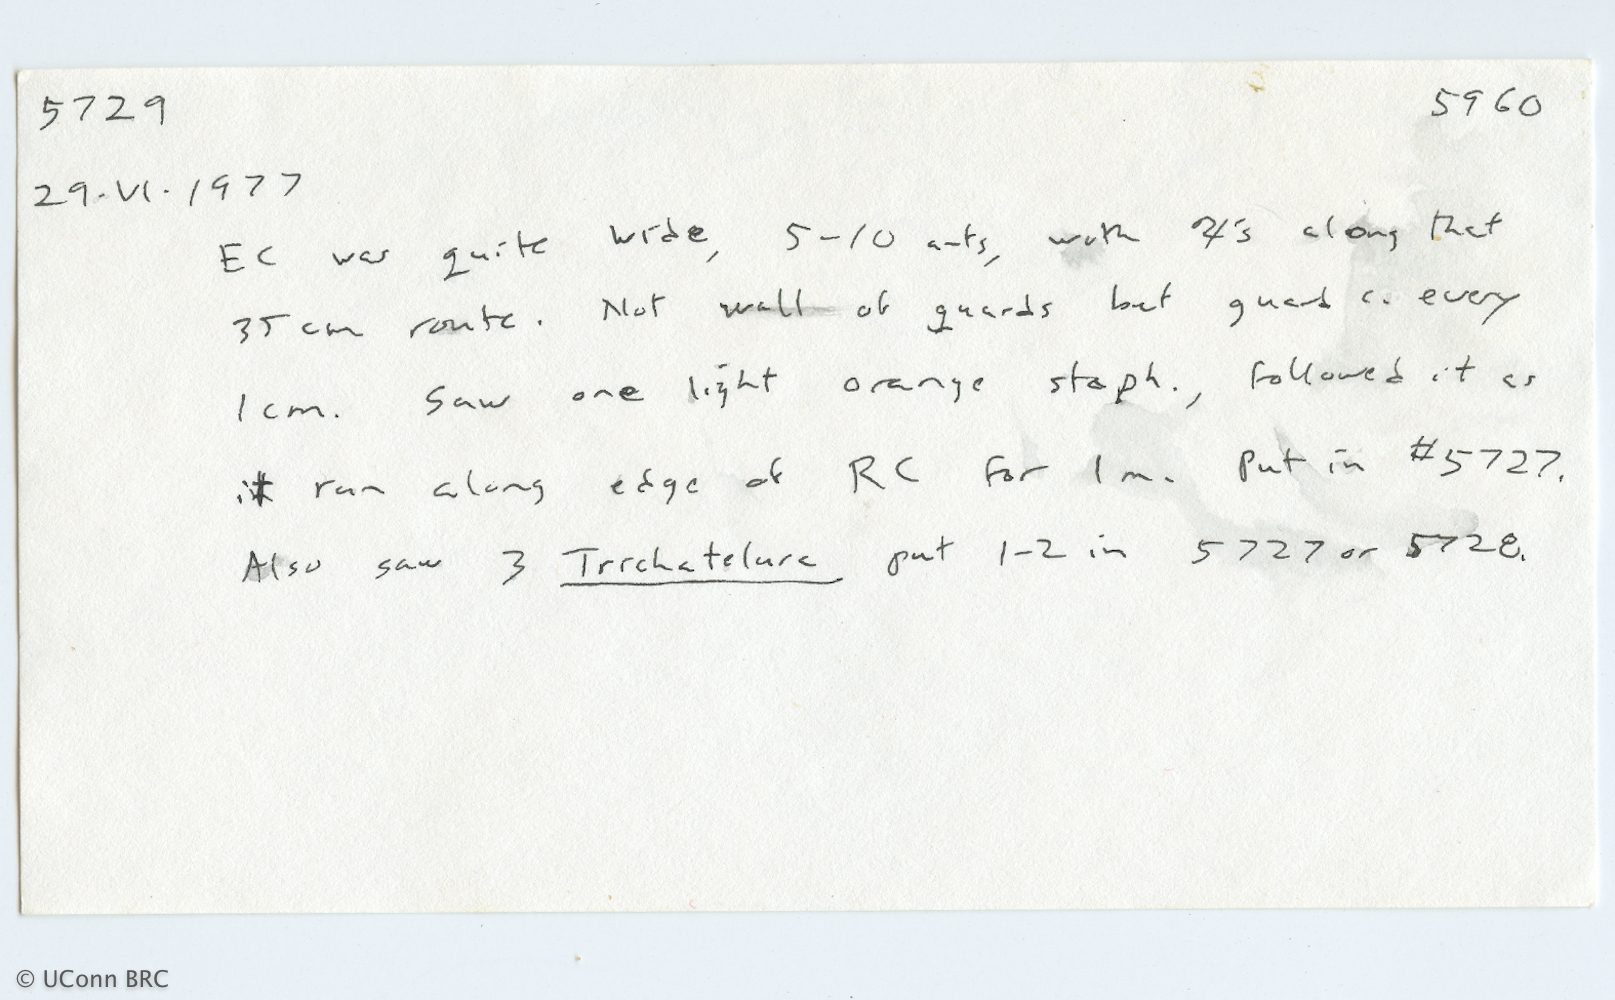 5729 5960
29.VI.1977
EC was quite wide, 5-10 ants, with 's along that
35 cm route. Not wall of guards but guard c. every
1 cm. Saw one light orange staph., followed it as
it ran along edge of RC for 1 m. Put in #5727.
Also saw 3 Trichatelura put 1-2 in 5727 or 5728.
© UConn BRC